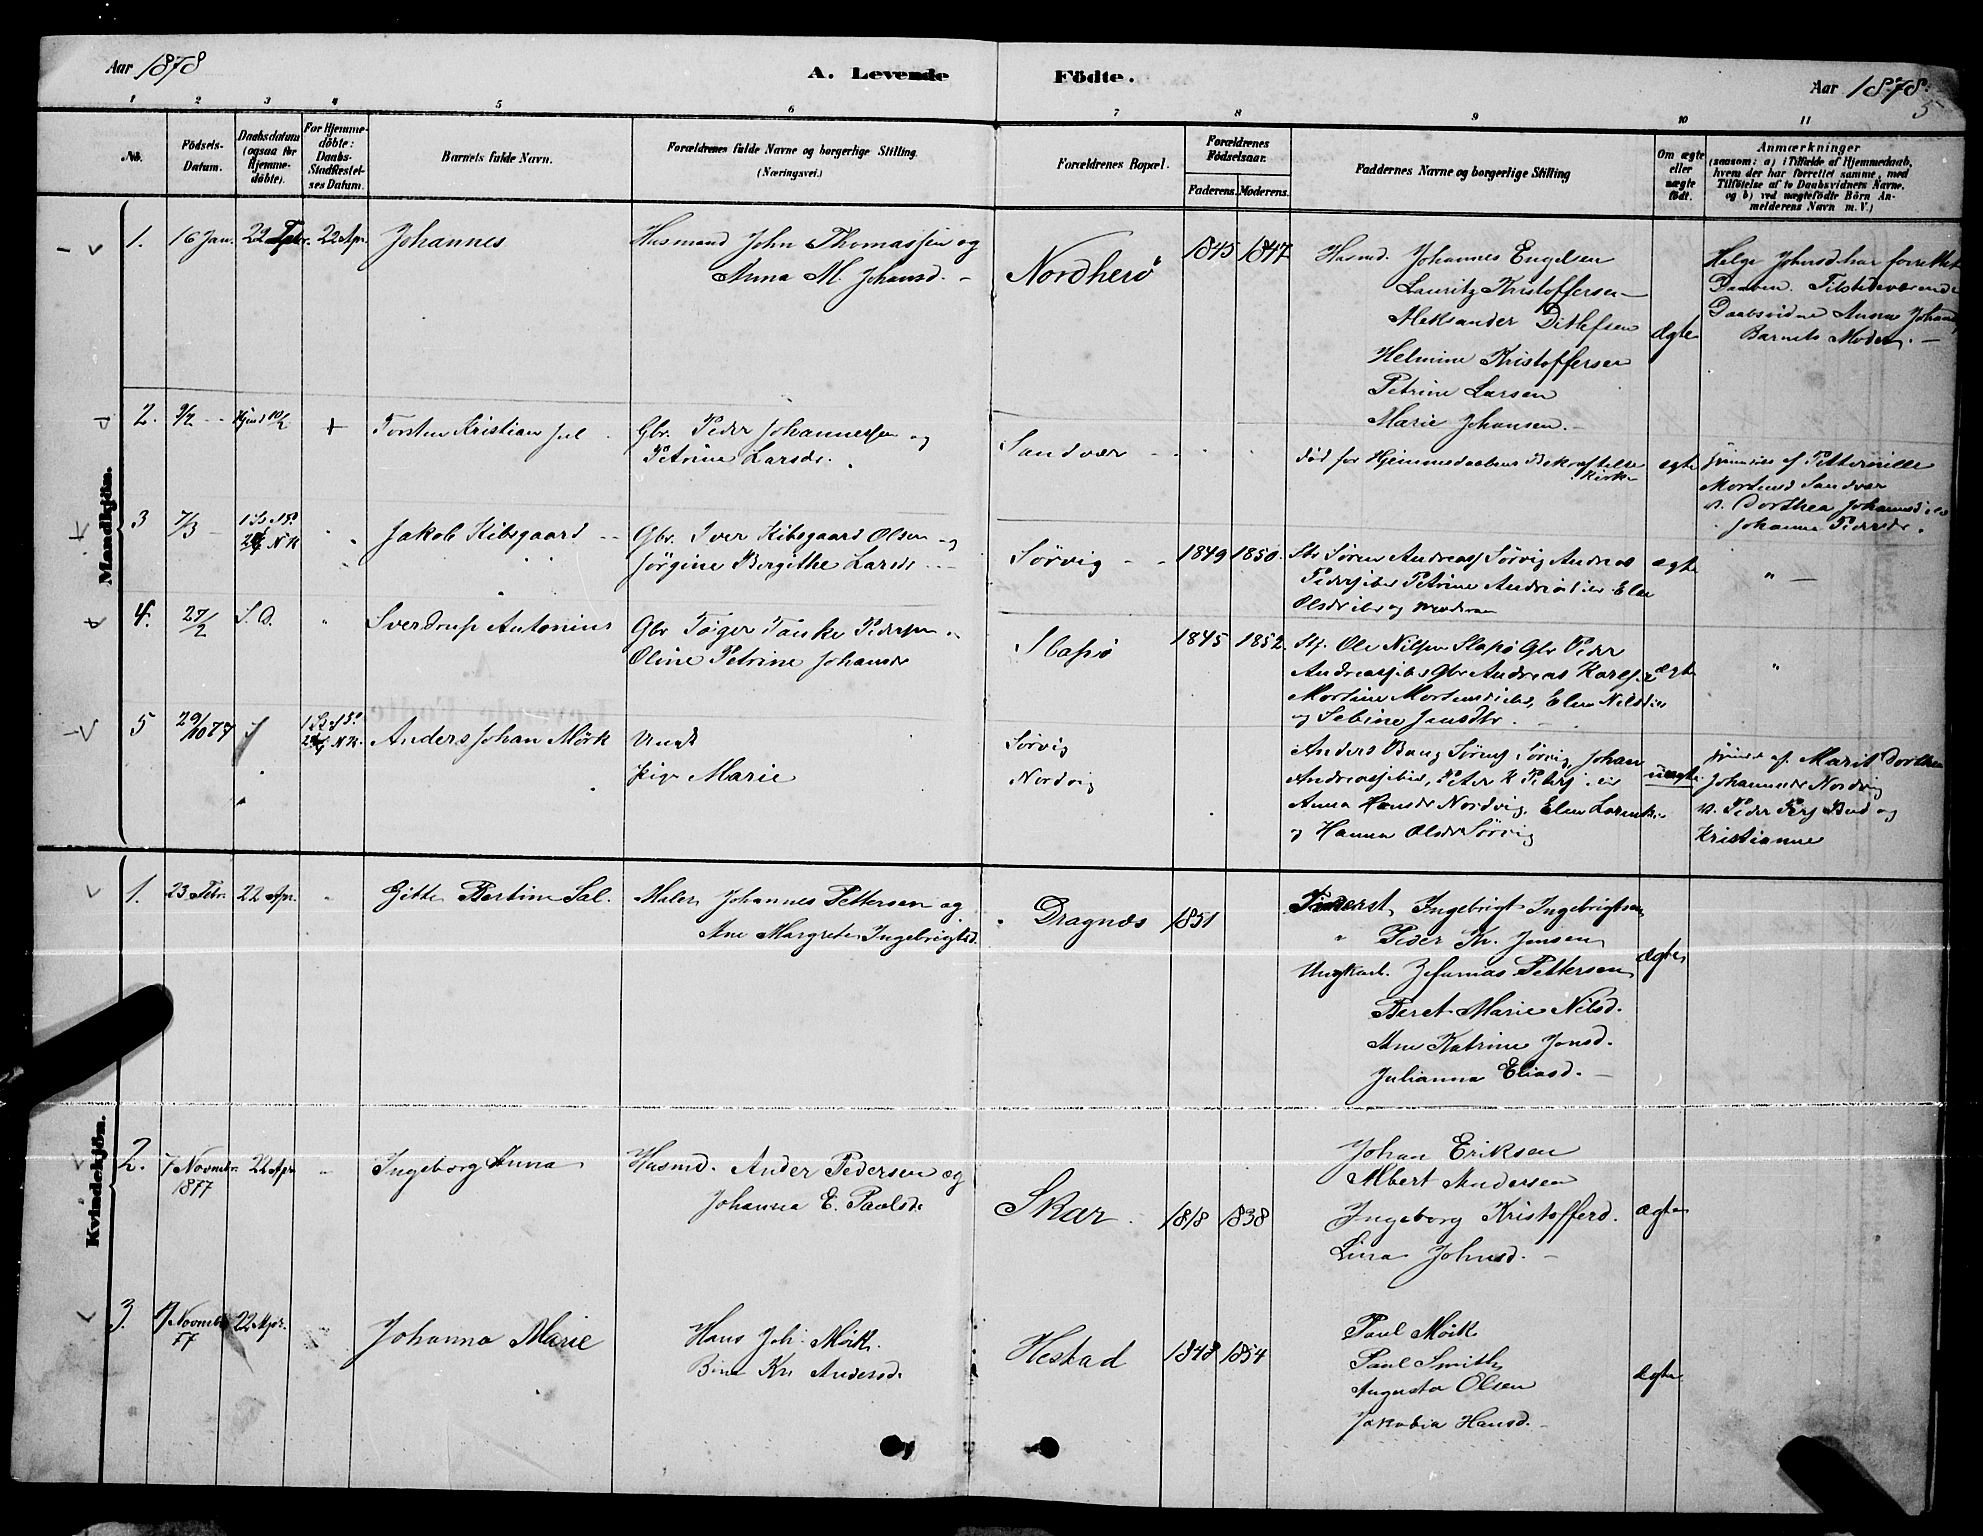 Aar 1878
A. Levende Födte.
Aar 1878.
5
1 2 3 4 5 6 7 8 9 10 11
No.
Födsels-Datum.
Daabsdatum (ogsaa for Hjemme-döbte).
For Hjemme-döbte: Daabs-Stadfæstel-ses Datum.
Barnets fulde Navn.
Forældrenes fulde Navne og borgerlige Stilling.
(Næringsvei.)
Forældrenes Bopæl.
Forældrenes Födselsaar.
Faderens. Moderens.
Faddernes Navne og borgerlige Stilling
Om ægte eller uægte födt.
Anmærkninger
(saasom: a) i Tilfælde af Hjemmedaab,
hvem der har forrettet samme, med
Tilföielse af to Daabsvidners Navne.
og b) ved uægtefödte Börn An-
melderens Navn m. V.)
Mandkjön.
1. 16 Jan. 22 Febr. 22 Apr. Johannes
Husmand John Thomassen og
Anna M. Johansd. -
Nordherö
1845 1847
Husmd. Johannes Engelsen
Lauritz Kristoffersen
Aleksander Ditlefsen
Helmine Kristoffersen
Petrine Larsen
Marie Johansen.
Ægte
Helge Johnsd har forrettet
Daaben. Tilstedeværende
Daabsvidne Anna Johansd
Barnets Moder. -
2. 9/2 Hjmd 10/2 + Torsten Kristian Jul
Gbr. Peder Johannessen og
Petrine Larsdr.
Sandvær
død før Hjemmedaabens Bekræftelse
i Kirke
ægte
Mortensd Sandvær
v. Dorthea Johannsd
Johanna Pedersdr.
3 7/3 Jakob Kibsgaard
Gbr. Iver Kibsgaard Olsen og
Jørgine Bergithe Larsdr
Sørvig
1849 1850.
Søren Andreass Sørvig Andreas
Petrine Andr Elen
Olsdr og Moderen
ægte
" -
4. 27/2 S. D. " Sverdrup Antonius
Gbr Tøiger Tanke Pedersen
Oline Petrine Johansdr
Slapø
1845 1852.
Ole Nilsen Slapø Gbr Peder
Gbr Andreas Karels
Mortine Mortensd Elen Nilsd
og Sabine Jensdtr.
ægte
"
5 29/10 77 Anders Johan Mörk
Ungk
Pige Marie
Sørvig
Nordvig
Anders Bang Sørens Sørvig, Johan
Peter K Peters
Anna Hansdr Nordvig, Elen Larentz
og Hanna Olsdr Sørvig
uægte
af Marit Dorthea
Johannesdr Nordvig
v. Peder og
Kristianne
Kvindekjön.
1. 23 Febr. 22 Apr. " Gitte Bertine Sal.
Maler Johannes Pettersen og
Ane Margrete Ingebrigtsd.
Dragnæs
1851
Ingebrigt Ingebrigtsen
" Peder Kr. Jensen
Ungkarl. Zefanias Pettersen
Beret Marie Nilsd.
Ane Katrine Jonsd.
Julianna Eliasd. -
ægte
2. 7 Novmbr. 1877 22 Apr Ingeborg Anna
Husmd. Ander Pedersen og
Johanna E. Paulsdr
Skar.
1818 1838
Johan Eriksen
Albert Andersen
Ingeborg Kristofferd.
Lina Johnsd. -
ægte
3. Novmbr 77 22 Apr. Johanna Marie
Hans Joh. Mörk.
Bina Kr. Andersd.
Hestad
1848 1854
Paul Mörk
Paul Smith
Augusta Olsen
Jakobia Hansd. -
ægte